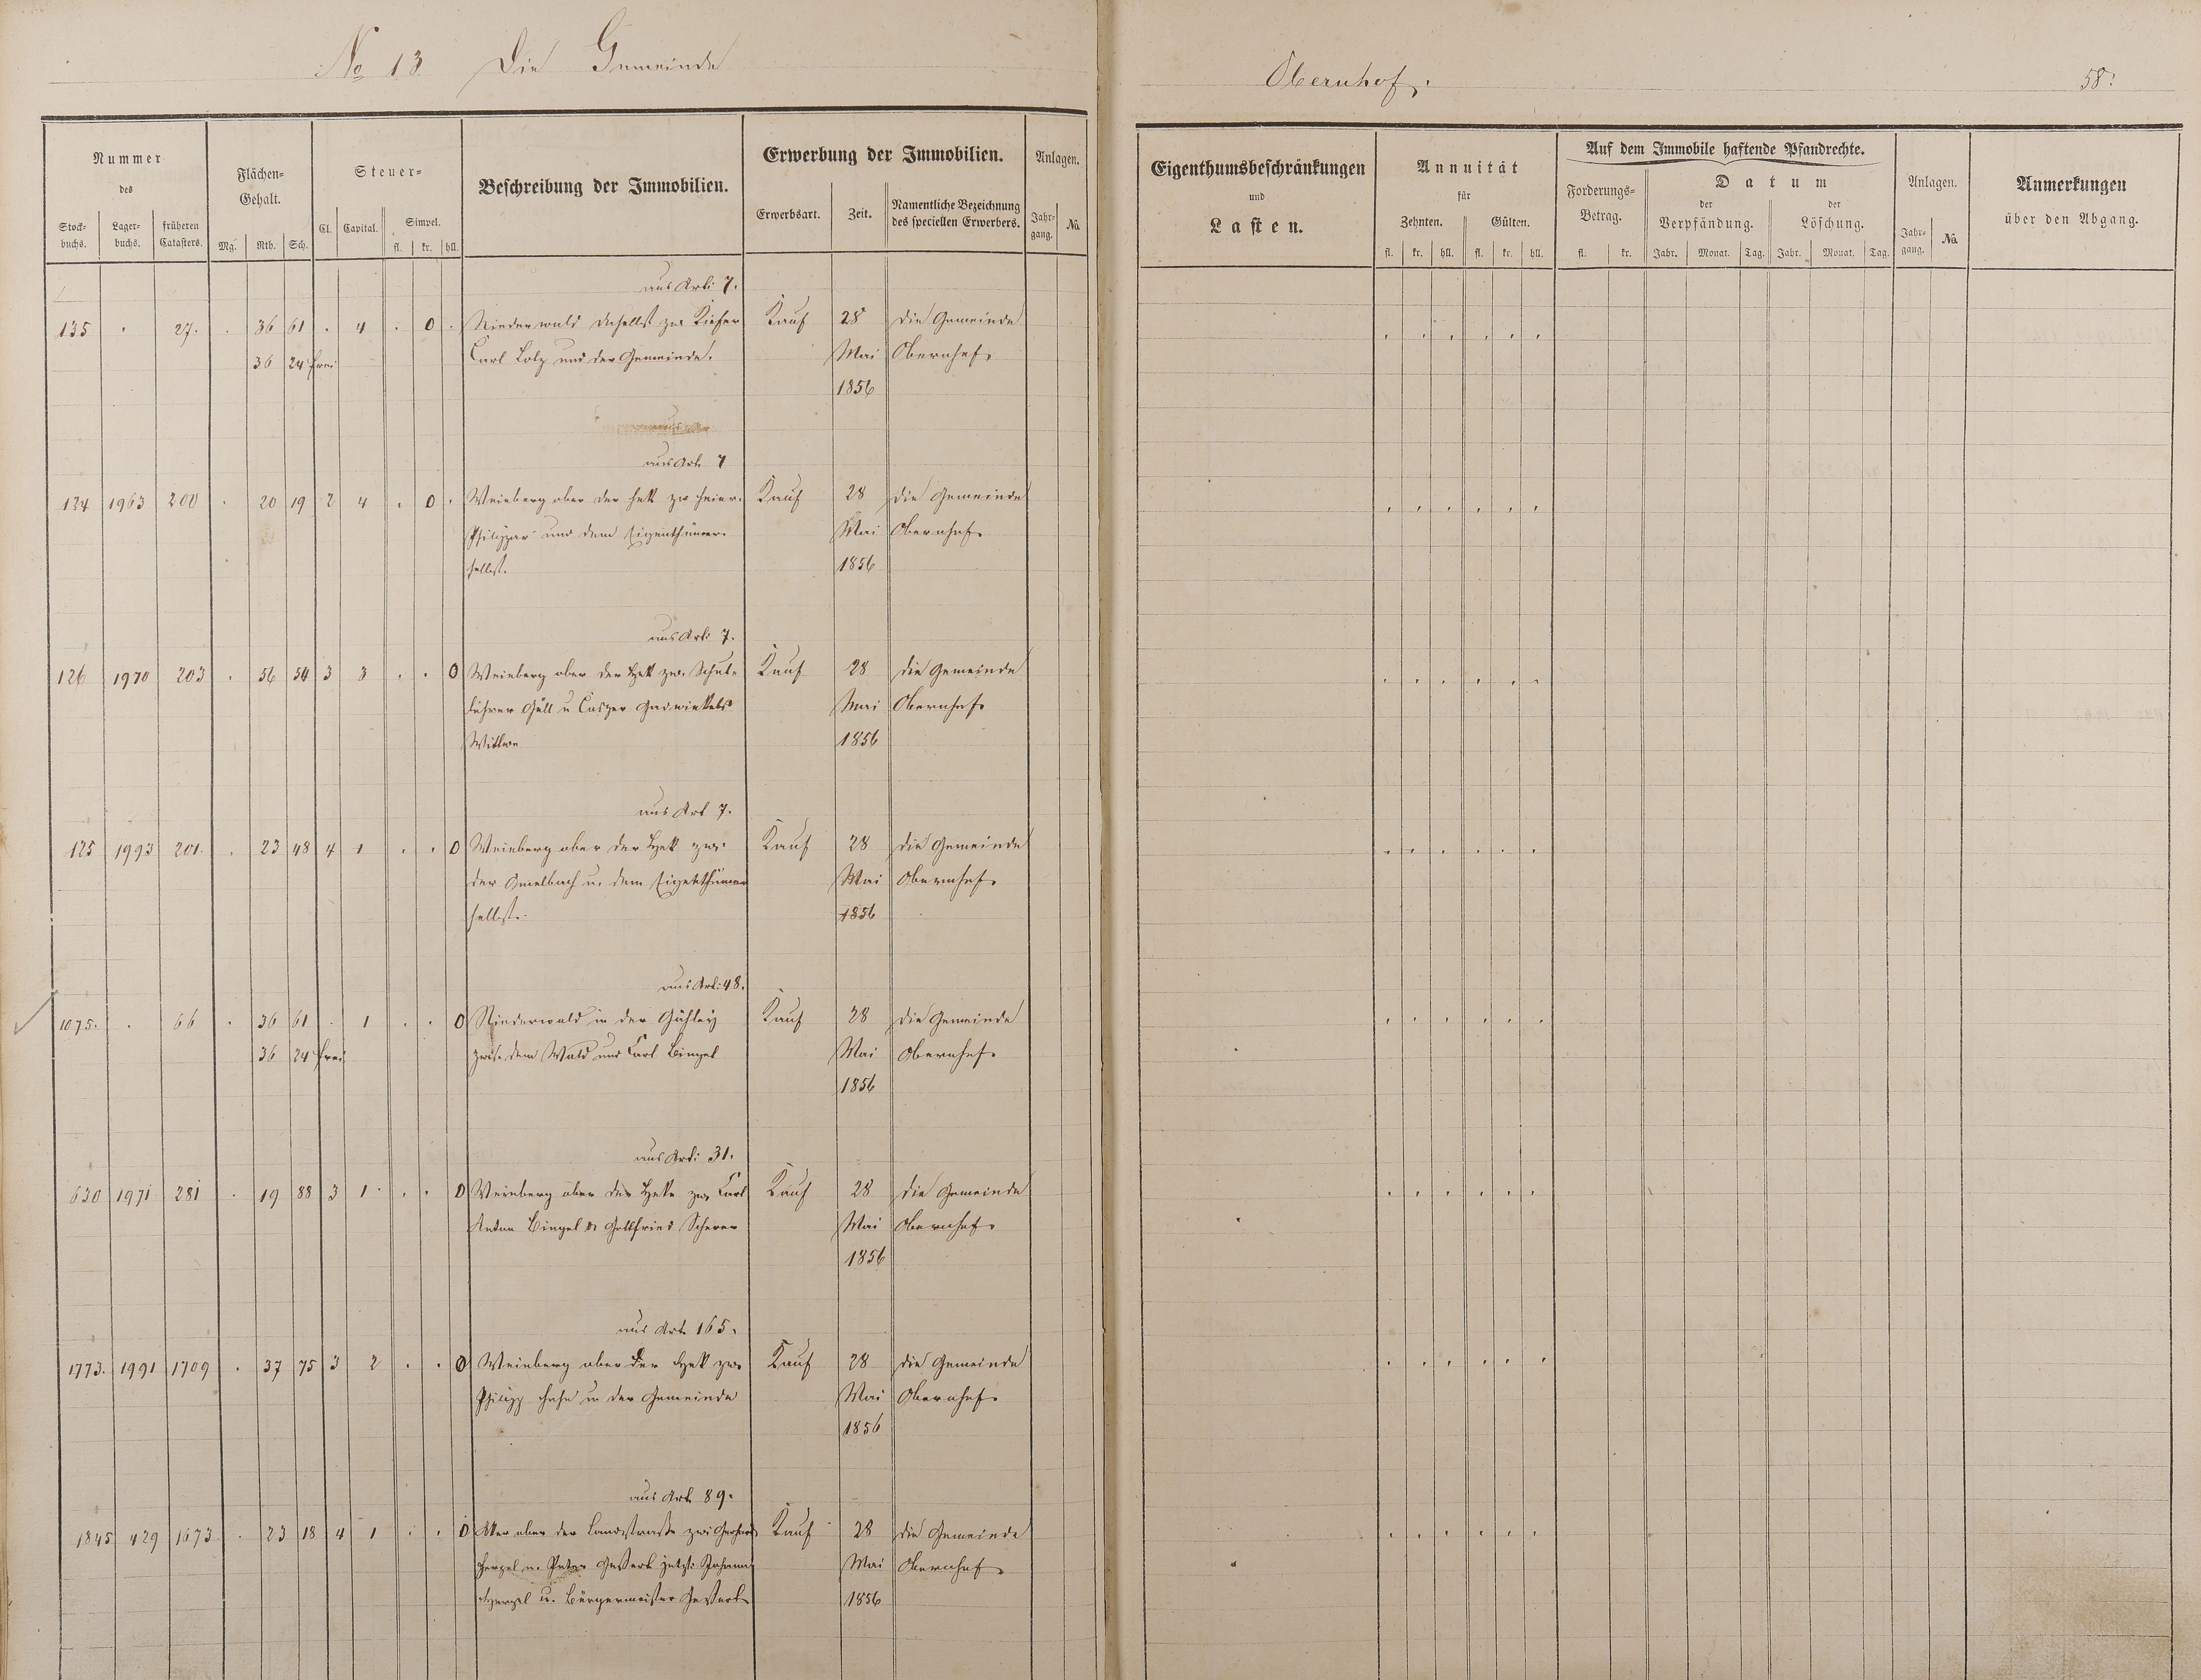 No 13. Die Gemeinde
Obernhof.
58.
Nummer
des
Stock-
buchs.
Lager-
buchs.
früheren
Catasters.
Flächen-
Gehalt.
Mg.
Rth.
Sch.
Steuer-
Cl.
Capital.
Simpel.
fl.
kr.
hll.
Beschreibung der Immobilien.
Erwerbung der Immobilien.
Erwerbsart.
Zeit.
Namentliche Bezeichnung
des speciellen Erwerbers.
Anlagen.
Jahr-
gang.
No.
Eigenthumsbeschränkungen
und
Lasten.
Annuität
für
Zehnten.
Gülten.
fl. kr. hll. fl. kr. hll.
Auf dem Immobile haftende Pfandrechte.
Forderungs-
Betrag.
fl. kr.
Datum
der
Verpfändung.
der
Löschung.
Jahr. Monat. Tag. Jahr. Monat. Tag.
Anlagen.
Jahr-
gang.
No.
Anmerkungen
über den Abgang.
aus Art: 7.
135 . 27. . 36 61 . 4 . 0 . Niederwald daselbst zw. Kiefer Kauf 28 die Gemeinde
36 24 frei Carl Lotz und der Gemeinde. Mai Obernhof.
1856
aus Art. 7
124 1963 200 . 20 19 2 4 . 0 . Weinberg ober der Heck zw Kauf 28 die Gemeinde
und dem Eigenthümer Mai Obernhof.
selbst. 1856
aus Art: 7.
126 1970 203 . 56 54 3 3 . . 0 Weinberg ober der Heck zw. Schul- Kauf 28 die Gemeinde
lehrer Güll u Casper Mai Obernhof.
Wittwe 1856
aus Art 7.
125 1993 201. . 23 48 4 1 . . 0 Weinberg ober der Heck zw. Kauf 28 die Gemeinde
der Gmelbach u. dem Eigenthümer Mai Obernhof.
selbst. 1856
aus Art: 48.
1075. . 66 . 36 61 . 1 . . 0 Niederwald in der Kauf 28 die Gemeinde
36 24 frei zwis. dem Wald und Carl Bingel Mai Obernhof.
1856
aus Art: 31.
630 1971 281 . 19 88 3 1 . . 0 Weinberg ober der Hecke zw. Carl Kauf 28 die Gemeinde
Anton Bingel u. Gottfried Scherer Mai Obernhof.
1856
aus Art. 165.
1773. 1991 1709 . 37 75 3 2 . . 0 Weinberg ober der Heck zw. Kauf 28 die Gemeinde
Philipp Hehn u der Gemeinde Mai Obernhof.
1856
aus Art. 89.
1845 429 1673 . 23 18 4 1 . . 0 Acker ober der Landstraße zwi Kauf 28 die Gemeinde
Hergel u. Peter jetzt: Johann Mai Obernhof.
Hergel u. Bürgermeister 1856